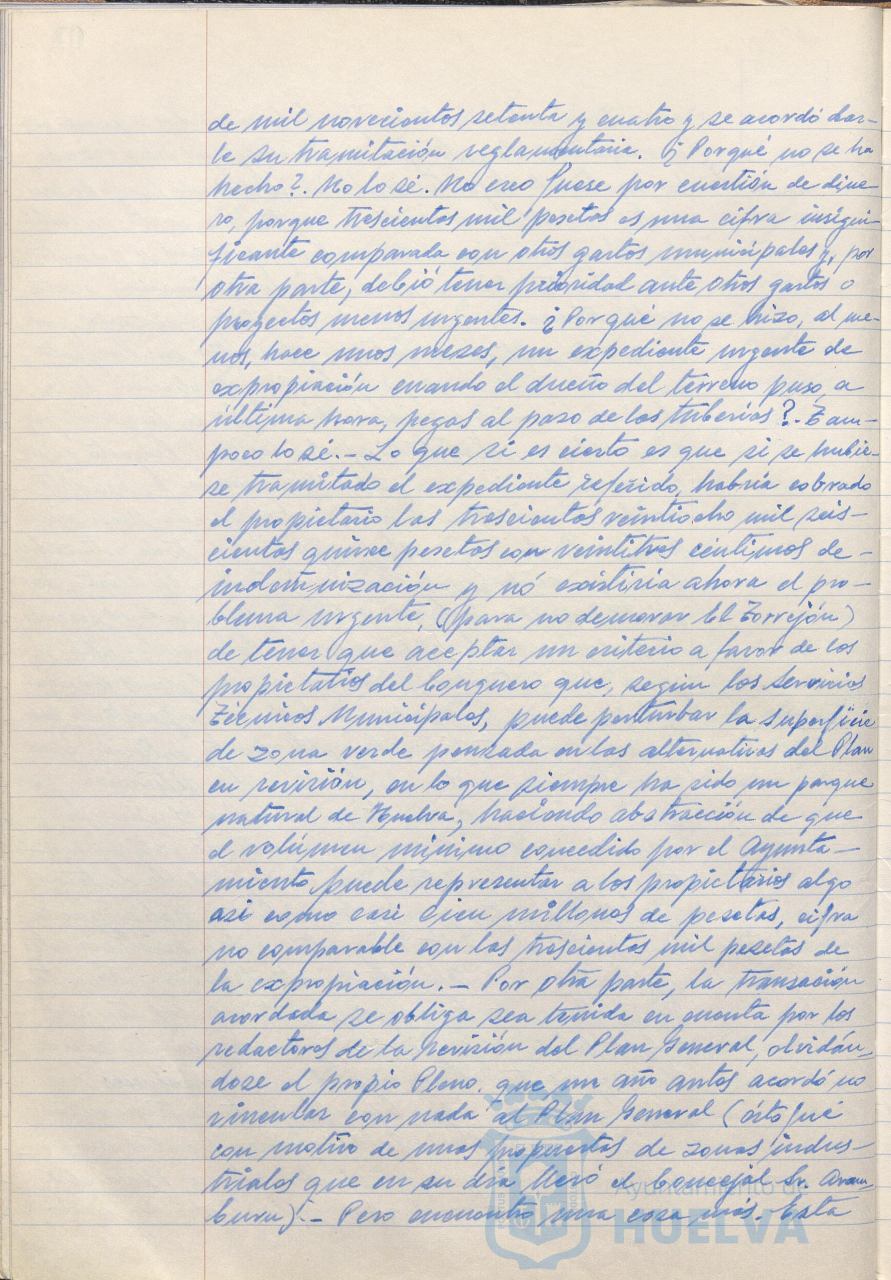 de mil novecientos setenta y cuatro y se acordó dar-
le su tramitación reglamentaria. ¿Porqué no se ha
hecho?. No lo sé. No creo fuese por cuestión de dine
ro, porque trescientos mil pesetas es una cifra insigni-
ficante comparada con otros gastos municipales y, por
otra parte, debió tener prioridad ante otros gastos o
proyectos menos urgentes. ¿Por qué no se hizo, al me-
nos, hace unos meses, un expediente urgente de
expropiación cuando el dueño del terreno puso, a
última hora, pegas al paso de las tuberias?. Tam-
poco lo sé.- Lo que si es cierto es que si se hubie-
se tramitado el expediente referido, habria cobrado
el propietario las trescientas veintiocho mil seis-
cientas quince pesetas con veintitres centimos de-
indemnización y nó existiria ahora el pro-
blema urgente, (para no demorar El Torrejón)
de tener que aceptar un criterio a favor de los
propietarios del Conquero que, según los Servicios
Técnicos Municipales, puede perturbar la superficie
de zona verde pensada en las alternativas del Plan
en revisión, en lo que siempre ha sido un parque
natural de Huelva, haciendo abstracción de que
el volúmen minimo concedido por el Ayunta-
miento puede representar a los propietarios algo
asi como casi cien millones de pesetas, cifra
no comparable con las trescientas mil pesetas de
la expropiación.- Por otra parte, la transación
acordada se obliga sea tenida en cuenta por los
redactores de la revisión del Plan General, olvidán-
dose el propio Pleno que un año antes acordó no
vincular con nada al Plan General (ésto fué
con motivo de unas propuestas de zonas indus-
triales que en su dia llevó el Concejal Sr. Aram
buru).- Pero encuentro una cosa más. Esta
Ayuntamiento de
HUELVA